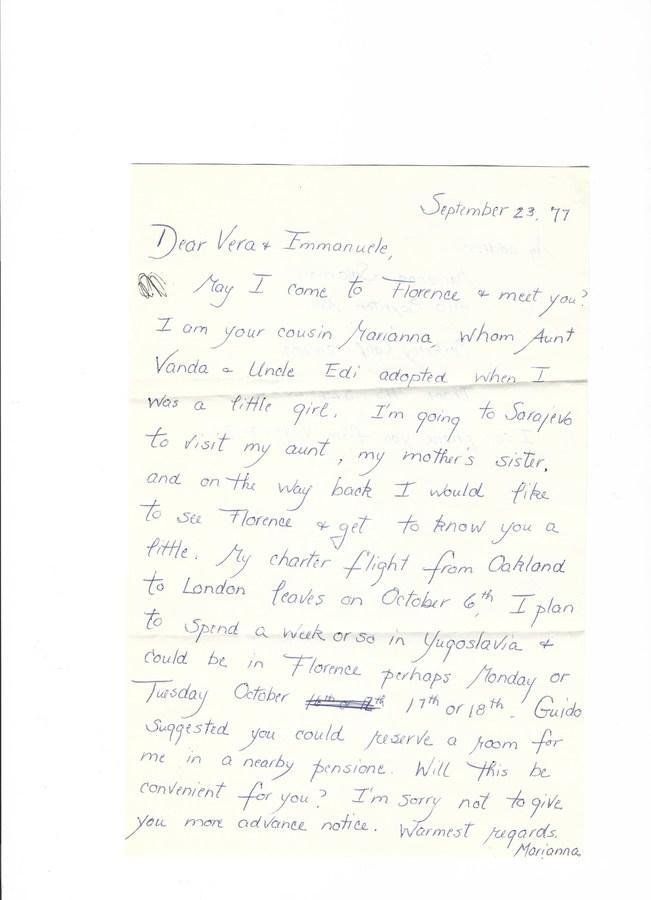 September 23, '77
Dear Vera & Immanuele,
May I come to Florence & meet you?
I am your cousin Marianna whom Aunt
Vanda & Uncle Edi adopted when I
was a little girl. I'm going to Sarajevo
to visit my aunt, my mother's sister,
and on the way back I would like
to see Florence & get to know you a
little. My charter flight from Oakland
to London leaves on October 6th, I plan
to spend a week or so in Yugoslavia &
could be in Florence perhaps Monday or
Tuesday October 17th or 18th. Guido
suggested you could reserve a room for
me in a nearby pensione. Will this be
convenient for you? I'm sorry not to give
you more advance notice. Warmest regards.
Marianna